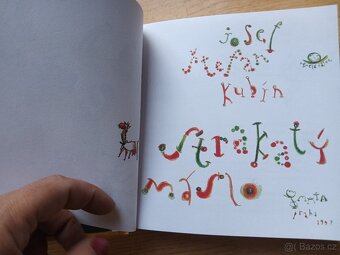 josef
štefan
kubín
Strakatý
máslo
praha
bazos.cz